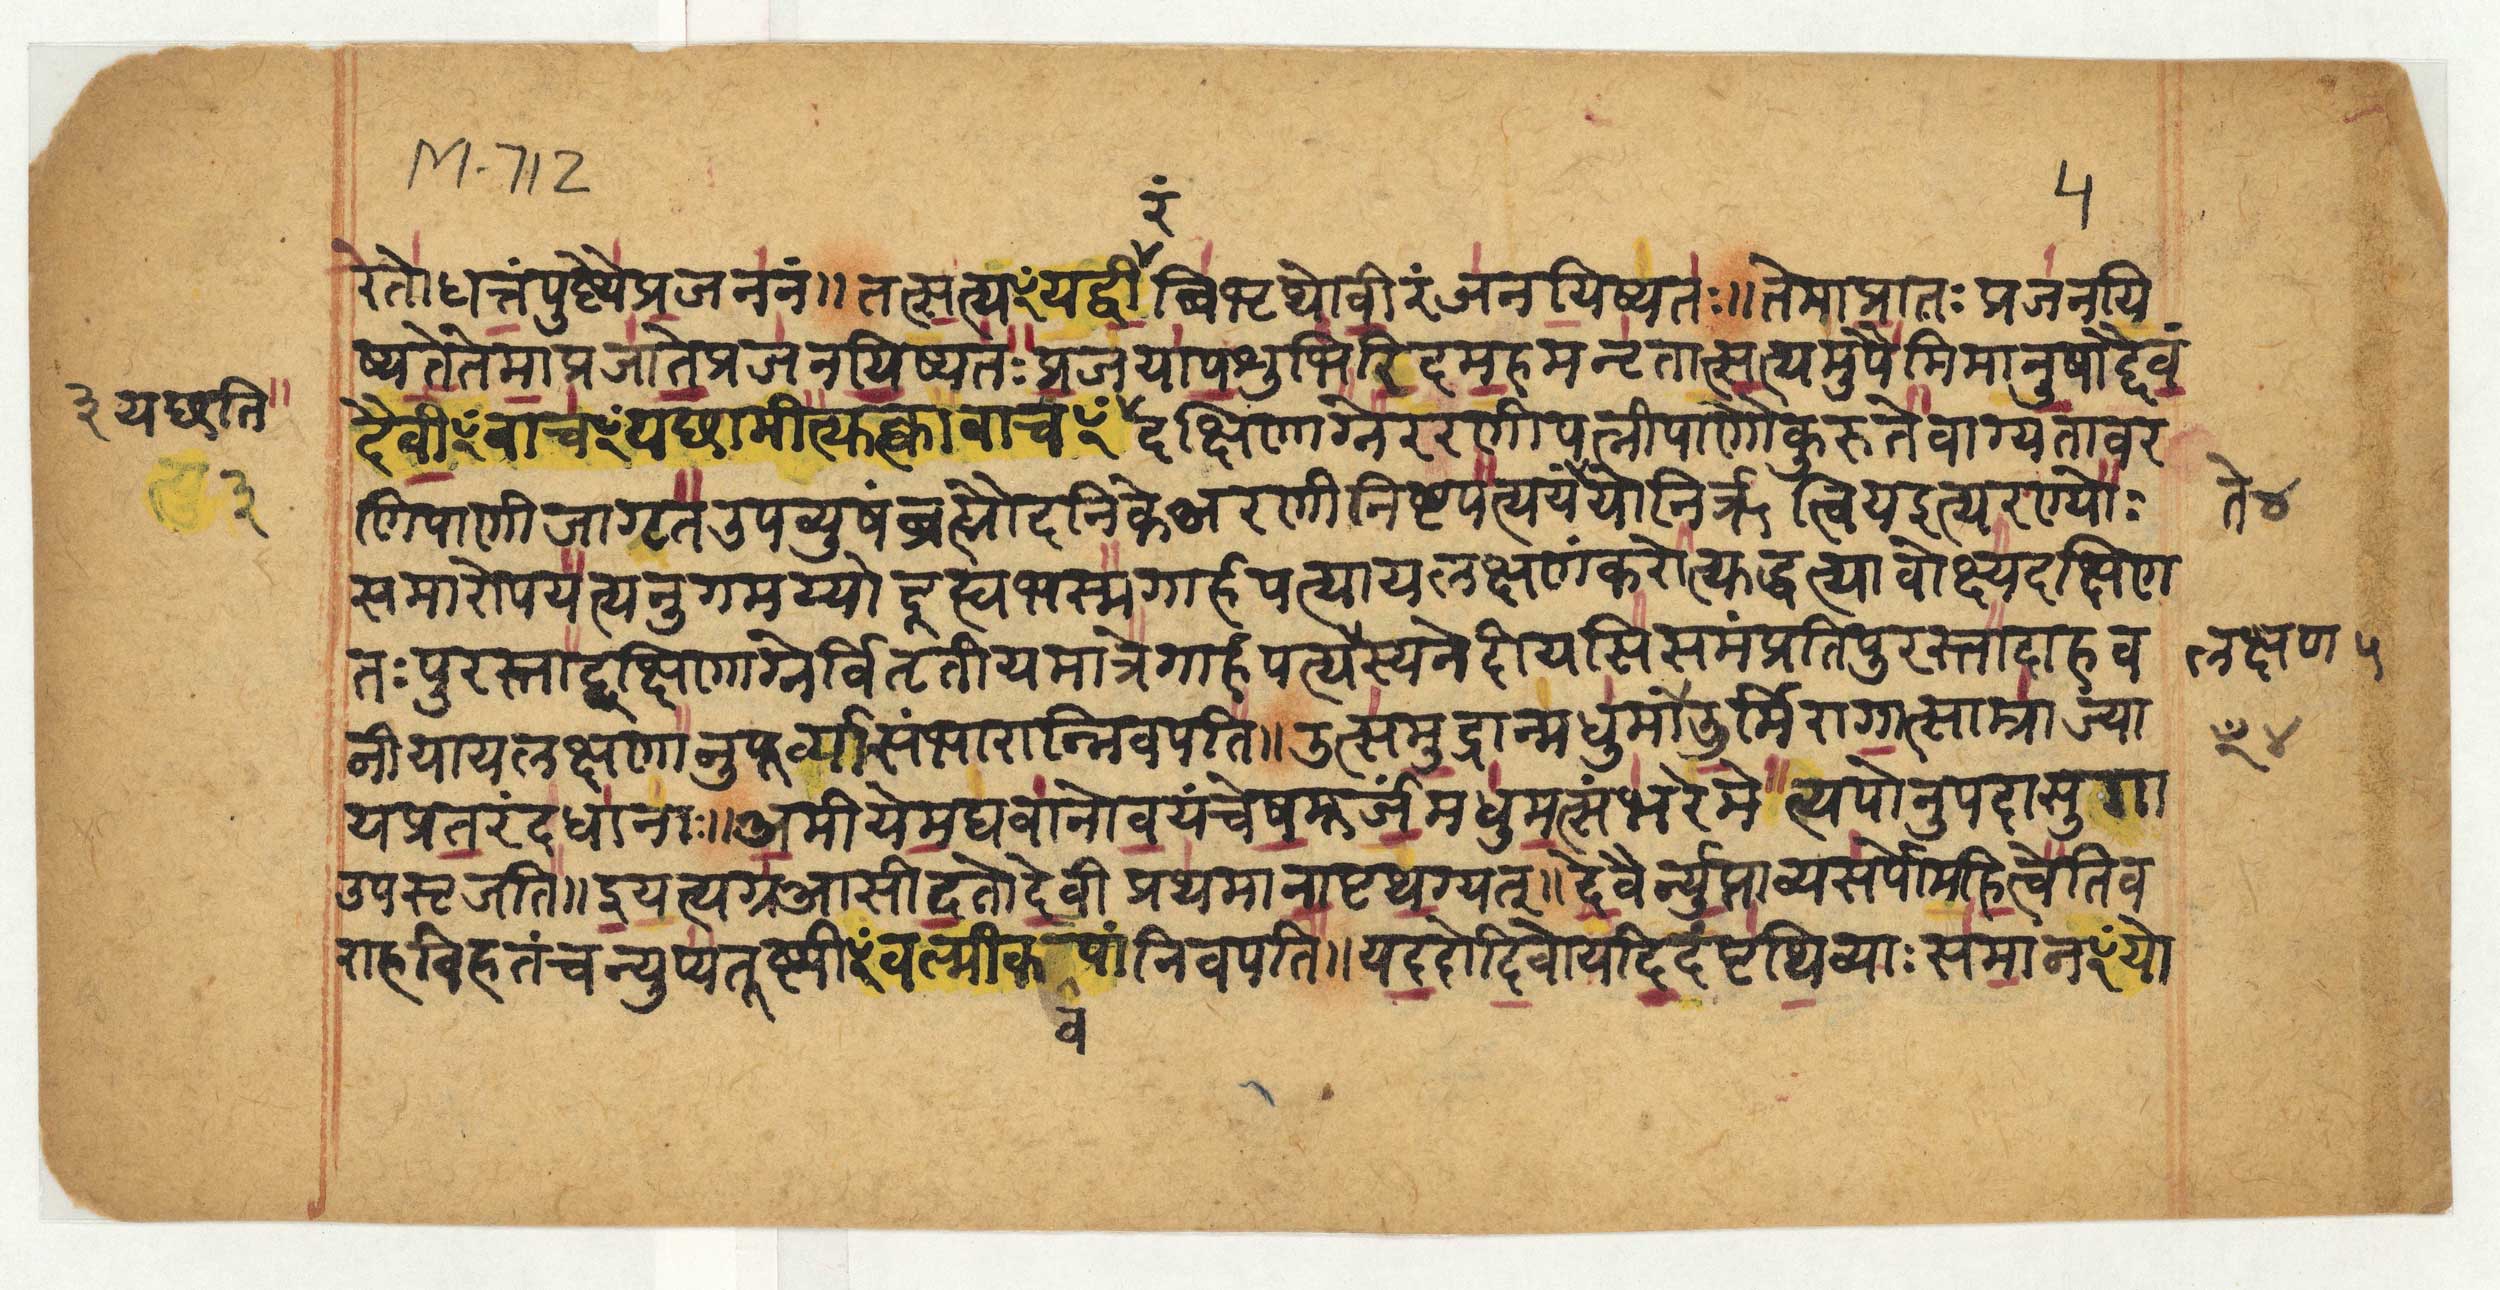 M-712
५
रं
रेतोधत्तंपुष्ट्यैप्रजननं॥तत्सत्यꣳयद्वीबिभृथोवीरंजनयिष्यतः॥तेमाप्रातःप्रजनयि
ष्यतेतेमाप्रजातेप्रजनयिष्यतःप्रजयापशुभिरिदमहमनृतात्सत्यमुपैमिमानुषाद्दैवं
३ यछति
दैवीꣳवाचꣳयछामीत्युक्त्वावाचꣳदक्षिणाग्नेररणीपत्नीपाणौकुरुतेवाग्यतावर
३
णिपाणीजागृतउपव्युषंब्रह्मौदनिकेअरणीनिष्टपत्ययंयोनिर्ऋत्वियइत्यरण्योः
ते ४
समारोपयत्यनुगमय्योदूह्यभस्मगार्हपत्यायलक्षणंकरोत्युद्धत्यावोक्ष्यदक्षिण
तःपुरस्ताद्दक्षिणाग्नेर्वितृतीयमात्रेगार्हपत्यस्यनेदीयसिसमंप्रतिपुरस्तादाहव
लक्षण ५
नीयायलक्षणानुपूर्व्यासंभारान्निवपति॥उत्समुद्रान्मधुमाँउर्मिरागात्साम्राज्या
ꣳ ४
यप्रतरंदधानाः॥अमीयेमघवानोवयंचेषमूर्जंमधुमत्संभरेमेत्यपोनुपदासुगा
उपसृजति॥इयत्यग्रआसीदतोदेवीप्रथमानापृथग्यत्॥देवैर्न्युप्ताव्यसर्पोमहित्वेतिव
राहविहतंचन्युप्यतूष्णीꣳवल्मीकपांनिवपति॥यददोदिवोयदिदंपृथिव्याःसमानꣳयो
व